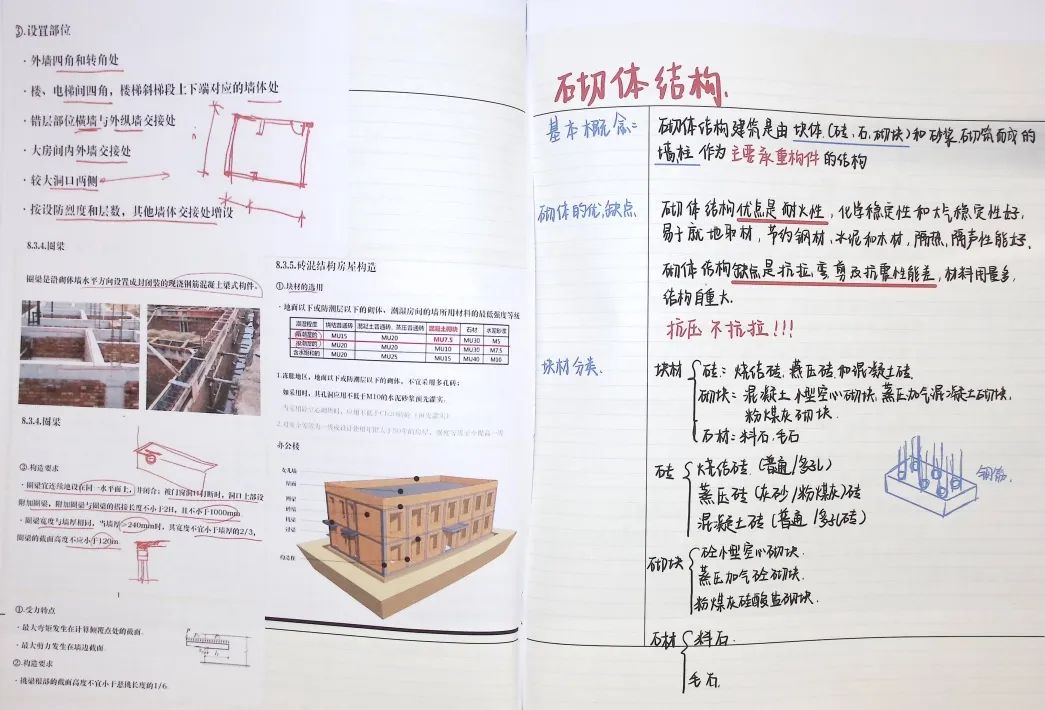 ③.设置部位
·外墙四角和转角处
·楼、电梯间四角，楼梯斜梯段上下端对应的墙体处
·错层部位横墙与外纵墙交接处
·大房间内外墙交接处
·较大洞口两侧
·按设防烈度和层数，其他墙体交接处增设
8.3.4.圈梁
圈梁是沿砌体墙水平方向设置成封闭装的现浇钢筋混凝土梁式构件。
8.3.4.圈梁
②.构造要求
·圈梁宜连续地设在同一水平面上，并闭合；被门窗洞口打断时，洞口上部设
附加圈梁，附加圈梁与圈梁的搭接长度不小于2H，且不小于1000mm
·圈梁宽度与墙厚相同，当墙厚≥240mm时，其宽度不宜小于墙厚的2/3，
圈梁的截面高度不应小于120m
①.受力特点
·最大弯矩发生在计算倾覆点处的截面
·最大剪力发生在墙边截面
②.构造要求
·挑梁根部的截面高度不宜小于悬挑长度的1/6
8.3.5.砖混结构房屋构造
①.块材的选用
·地面以下或防潮层以下的砌体、潮湿房间的墙所用材料的最低强度等级
潮湿程度 烧结普通砖 混凝土普通砖、蒸压普通砖 混凝土砌块 石材 水泥砂浆
稍潮湿的 MU15 MU20 MU7.5 MU30 M5
很潮湿的 MU20 MU20 MU10 MU30 M7.5
含水饱和的 MU20 MU25 MU15 MU40 M10
1.冻胀地区，地面以下或防潮层以下的砌体，不宜采用多孔砖；
如采用时，其孔洞应用不低于M10的水泥砂浆预先灌实。
办公楼
女儿墙
屋面
圈梁
砖墙
挑梁
过梁
构造柱
石砌体结构.
基本概念：
砌体结构建筑是由块体(砖、石、砌块)和砂浆砌筑而成的
墙柱作为主要承重构件的结构
砌体的优,缺点.
砌体结构优点是耐火性，化学稳定性和大气稳定性好，
易于就地取材，节约钢材、水泥和木材，隔热、隔声性能好.
砌体结构缺点是抗拉,弯,剪及抗震性能差，材料用量多,
结构自重大.
抗压不抗拉!!!
块材分类.
块材
砖：烧结砖.蒸压砖和混凝土砖.
砌块：混凝土小型空心砌块,蒸压加气混凝土砌块,
粉煤灰砌块.
石材：料石.毛石
钢筋.
砖
烧结砖(普通/多孔)
蒸压砖(灰砂/粉煤灰)砖
混凝土砖(普通/多孔砖)
砌块
砼小型空心砌块.
蒸压加气砼砌块.
粉煤灰硅酸盐砌块.
石材
料石.
毛石.